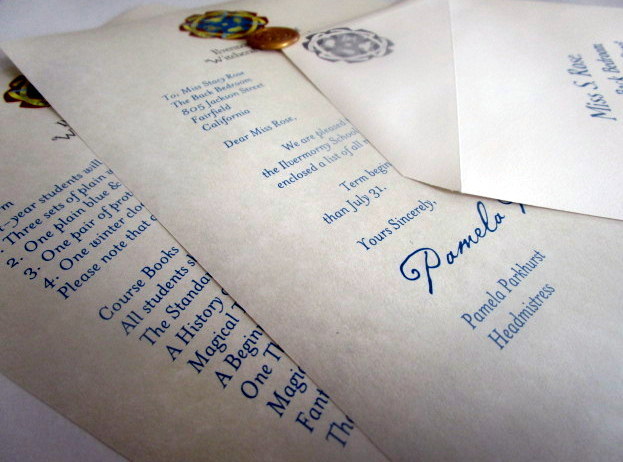 To, Miss Stacy Rose
The Back Bedroom
805 Jackson Street
Fairfield
California
Dear Miss Rose,
We are pleased
the Ilvermorny Schoo
enclosed a list of all
Term begin
than July 31.
Yours Sincerely,
Pamela
Pamela Parkhurst
Headmistress
Miss S Rose
Back Bedroom
-year students will
Three sets of plain
2. One plain blue &
3. One pair of
4. One winter
Please note that
Course Books
All students
The Standa
A History
Magical
A Beginn
One
Magic
Fant